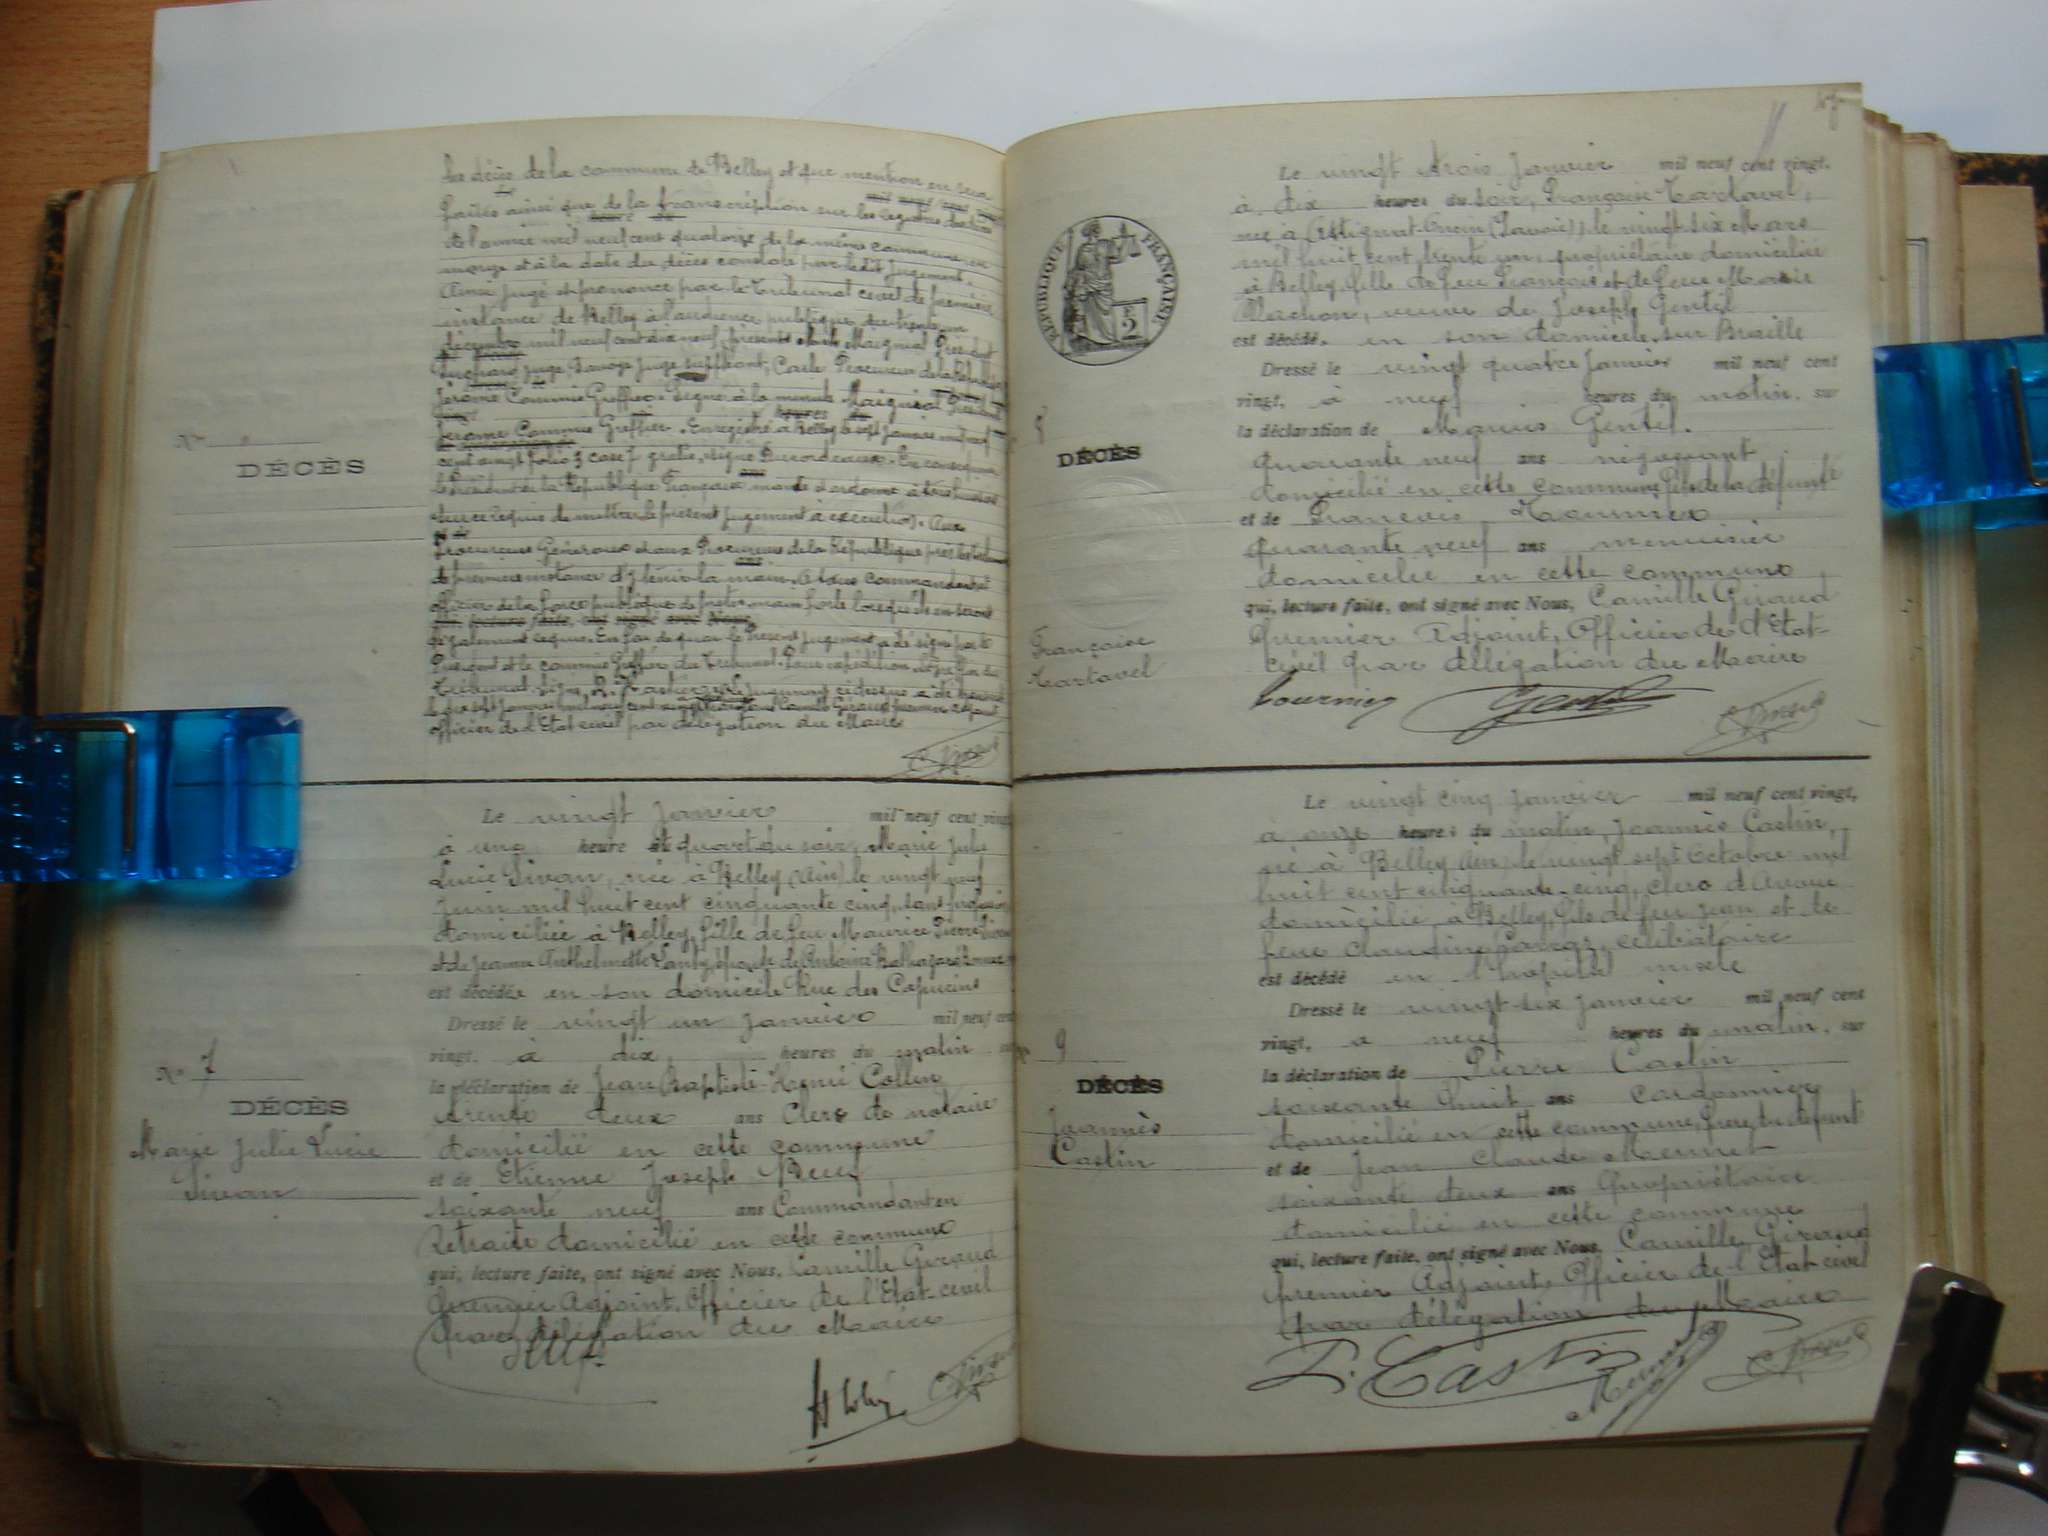 de décès de la commune de Belley et que mention en sera
faites ainsi que de la transcription sur les registres
de l'année mil neuf cent quatorze de la même commune en
marge et à la date du décès constaté par ledit jugement.
Ainsi jugé et prononcé par le Tribunal civil de première
instance de Belley à l'audience publique du trente un
décembre mil neuf cent dix neuf, présents Maignial Président
juge, Savoye juge suppléant, Carle Procureur de la République
Jérome Commis Greffier. Signé à la minute Maignial Président
Jérome Commis Greffier. Enregistré à Belley le sept janvier mil neuf
cent vingt folio 3 case 7 gratis, signé En conséquence
le Président de la République Française mande et ordonne à tous huissiers
sur ce requis de mettre le présent jugement à exécution. Aux
Procureurs Généraux et aux Procureurs de la République près les tribunaux
de première instance d'y tenir la main. A tous commandants et
officiers de la force publique de prêter main forte lorsqu'ils en seront
légalement requis. En foi de quoi le présent jugement a été signé par le
Président et le commis Greffier du Tribunal. Pour expédition
Tribunal signé
officier de l'Etat civil par délégation du Maire
No
DÉCÈS
Le vingt janvier mil neuf cent vingt
à une heure et quart du soir, Marie Julie
Lucie Sivan, née à Belley (Ain) le vingt neuf
juin mil huit cent cinquante cinq, sans profession
domiciliée à Belley, fille de feu Maurice Pierre Sivan
et de Jeanne Anthelmette épouse de Antoine Balthazard
est décédée en son domicile Rue des Capucins
Dressé le vingt un janvier mil neuf cent
vingt, à dix heures du matin sur
la déclaration de Jean Baptiste Henri Collin
trente deux ans Clerc de notaire
domicilié en cette commune
et de Etienne Joseph
soixante neuf ans Commandant en
Retraite domicilié en cette commune
qui, lecture faite, ont signé avec Nous, Camille Giraud
premier Adjoint, Officier de l'Etat civil
par délégation du Maire
No 7
DÉCÈS
Marie Julie Lucie
Sivan
RÉPUBLIQUE FRANÇAISE
E
2
Le vingt trois janvier mil neuf cent vingt,
à dix heures du soir, Françoise Martavel,
née à (Savoie), le vingt six Mars
mil huit cent trente un, propriétaire domiciliée
à Belley, fille de feu François et de feue Marie
Machon, veuve de Joseph Gentil
est décédée en son domicile sur Braille
Dressé le vingt quatre janvier mil neuf cent
vingt, à neuf heures du matin, sur
la déclaration de Marius Gentil.
quarante neuf ans négociant
domicilié en cette commune, fils de la défunte
et de François Tournier
quarante neuf ans menuisier
domicilié en cette commune
qui, lecture faite, ont signé avec Nous, Camille Giraud
premier Adjoint, Officier de l'Etat-
civil par délégation du Maire
Tournier Gentil
8
DÉCÈS
Françoise
Martavel
Le vingt cinq janvier mil neuf cent vingt,
à onze heures du matin, Joannès Castin,
né à Belley Ain, le vingt sept Octobre mil
huit cent cinquante-cinq, clerc d'avoué
domicilié à Belley, fils de feu Jean et de
feue Claudine célibataire
est décédé en l'hôpital mixte
Dressé le vingt-six janvier mil neuf cent
vingt, à neuf heures du matin, sur
la déclaration de Pierre Castin
soixante huit ans Cordonnier
domicilié en cette commune, frère du défunt
et de Jean Claude Mermet
soixante deux ans Propriétaire
domicilié en cette commune
qui, lecture faite, ont signé avec Nous, Camille Giraud
premier Adjoint, Officier de l'Etat civil
par délégation du Maire
P. Castin
9
DÉCÈS
Joannès
Castin